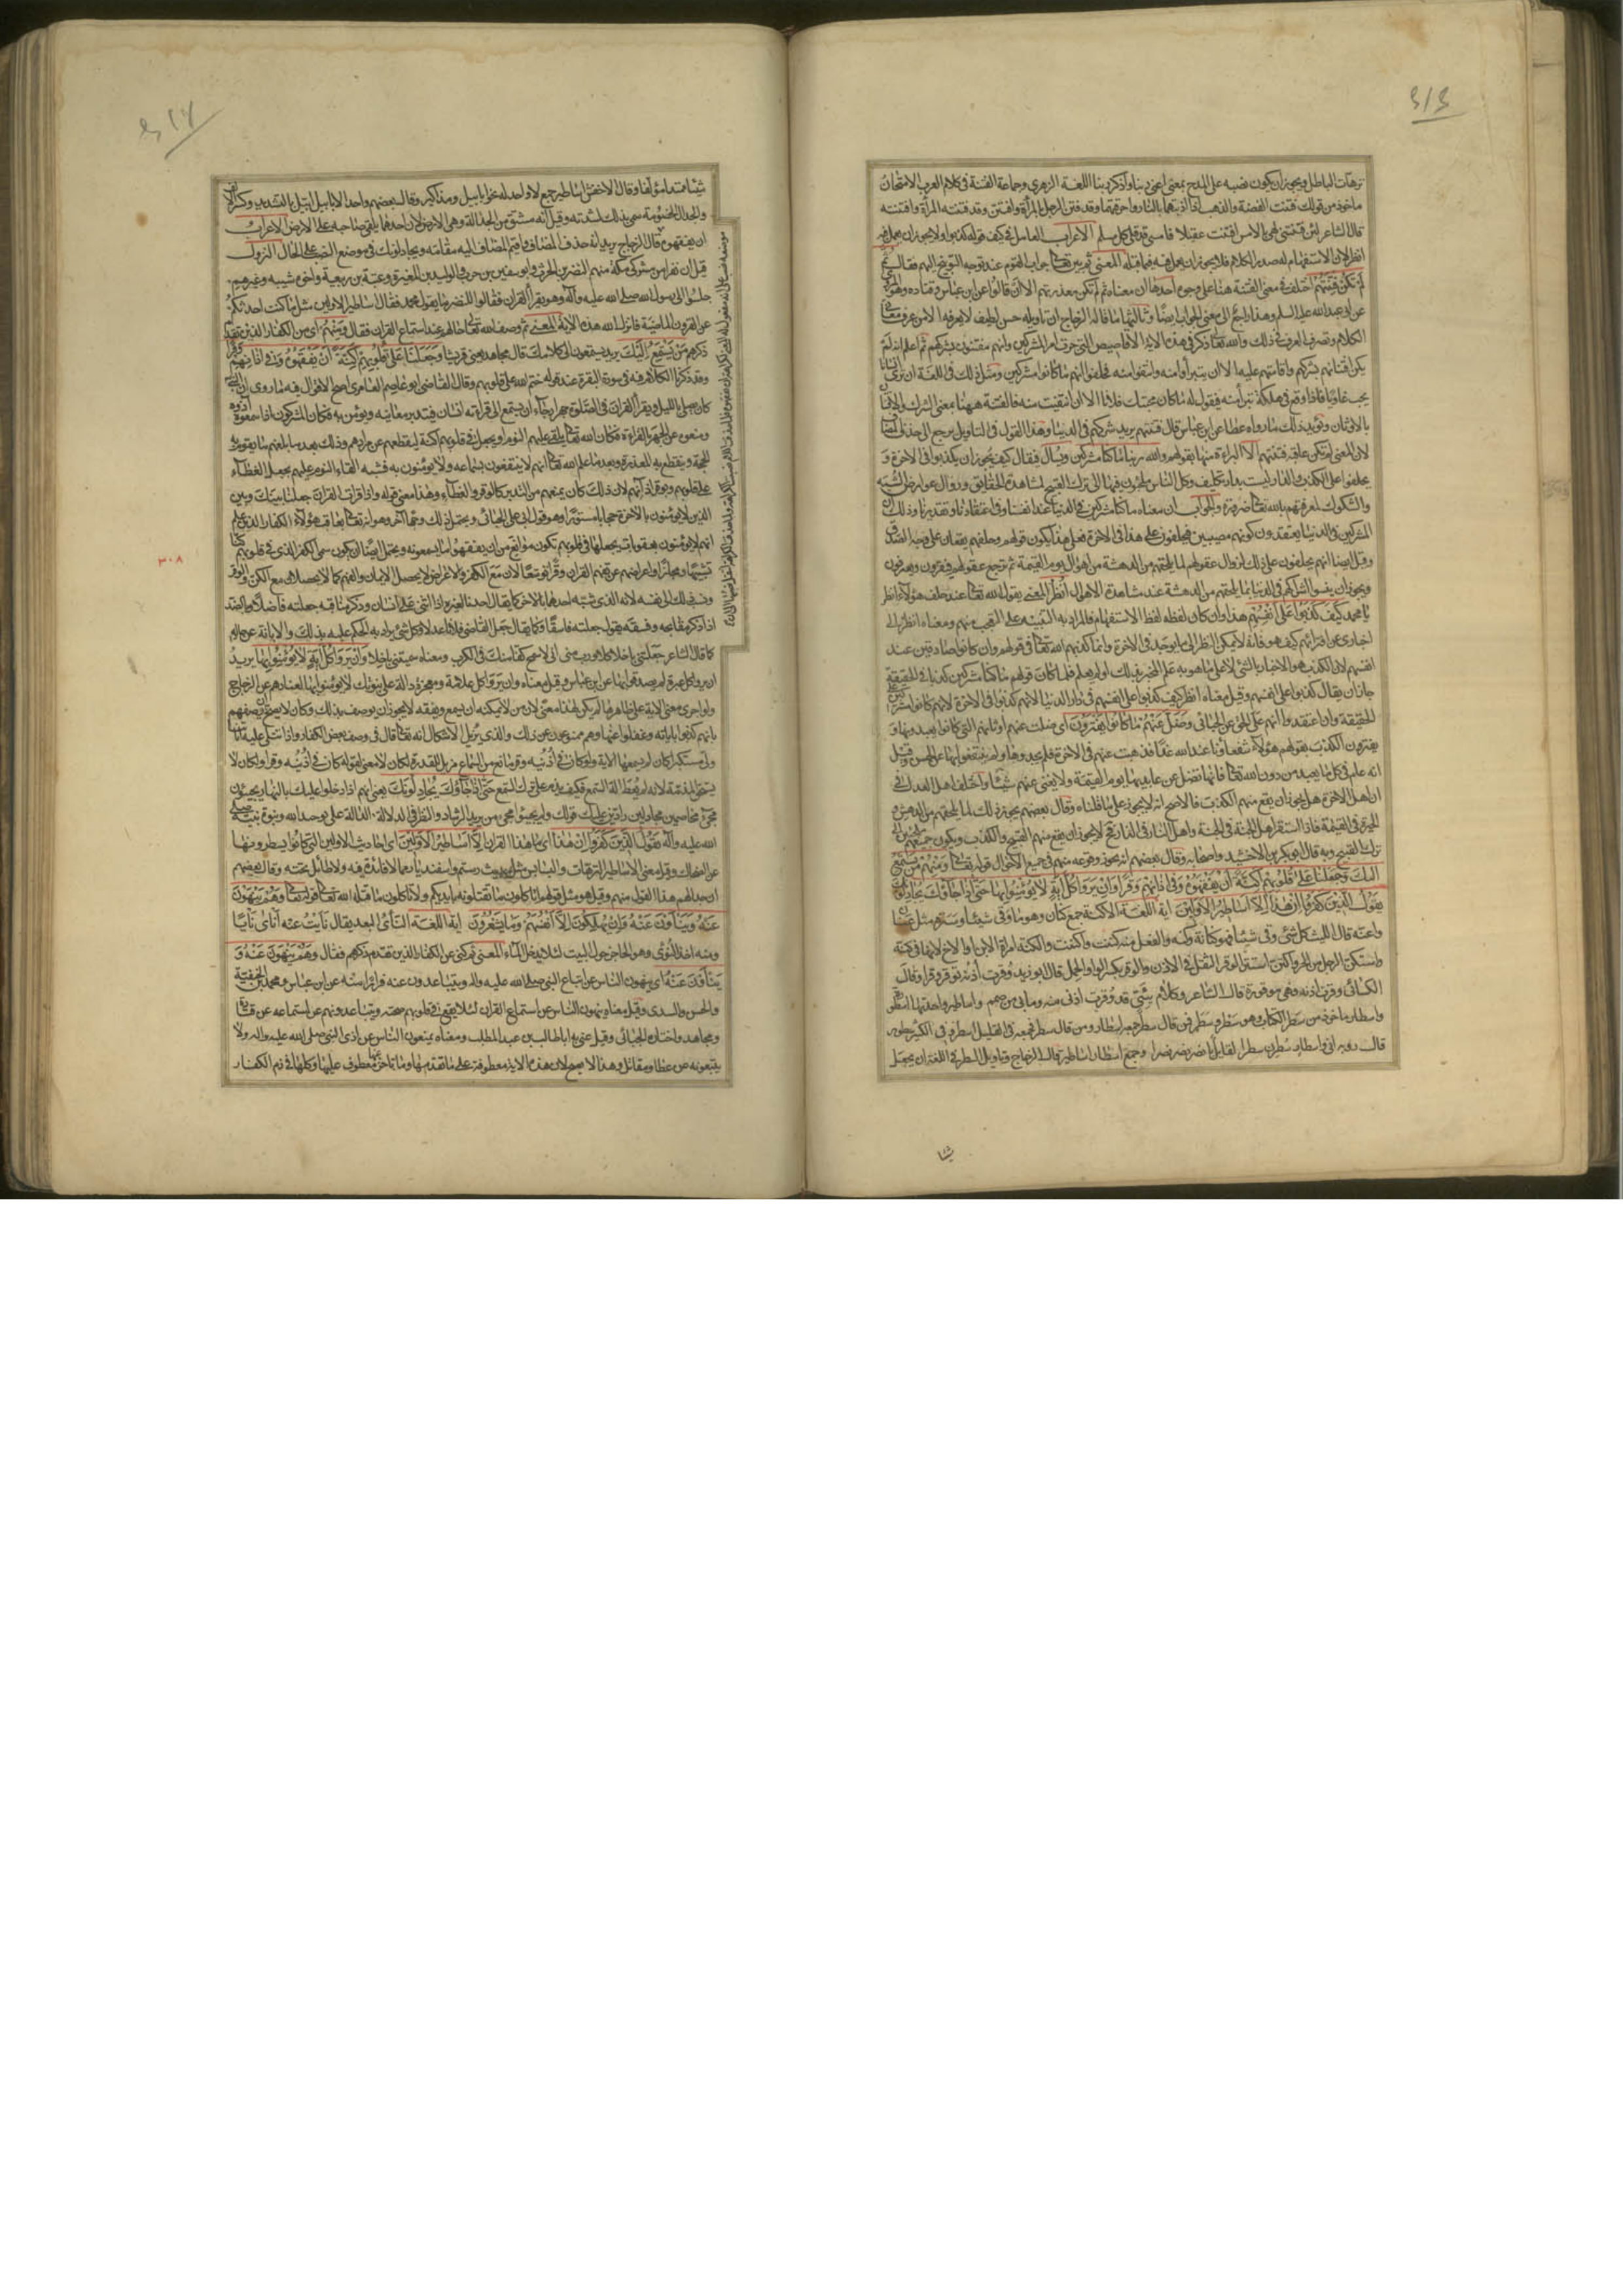 ترهات الباطل ويجوز ان يكون نصبه على المدح بمعنى اعنى ربنا واذكر ربنا اللغة الازهرى وجماعة الفتنة فى كلام العرب الامتحان
ماخوذ من قولك فتنت الفضة والذهب اذا اذبتهما بالنار واحرقتهما وقد فتن الرجل بالمرأة وافتتن وقد فتنته المرأة وافتنته
قال الشاعر لئن فتنتنى لهى بالامس افتنت عقيلا فامسى قد قلى كل مسلم الاعراب العامل فى كيف قوله كذبوا ولا يجوز ان يعمل فيه
انظر لان الاستفهام له صدر الكلام فلا يجوز ان يعمل فيه ما قبله المعنى ثم بين تعالى جواب القوم عند توجه التوبيخ اليهم فقال ثم
لم تكن فتنتهم اختلف فى معنى الفتنة هنا على وجوه احدها ان معناه ثم لم تكن معذرتهم الا ان قالوا عن ابن عباس وقتاده وهو المروى
عن ابى عبد الله عليه السلم وهذا راجع الى معنى الجواب ايضا وثالثها ما قاله الزجاج ان تاويله حسن لطيف لا يعرفه الا من عرف معانى
الكلام وتصرف العرب فى ذلك والله تعالى ذكر فى هذه الاية الاقاصيص التى جرت امر المشركين وانهم مفتتنون بشركهم ثم اعلم انه لم
يكن افتتانهم بشركهم واقامتهم عليه الا ان يتبرأوا منه وانتفوا منه فحلفوا انهم ما كانوا مشركين ومثل ذلك فى اللغة ان ترى انسانا
يحب غاويا فاذا وقع فى هلكة تبرأ منه فيقول له ما كان محبتك فلانا الا ان انتفيت منه فالفتنة ههنا بمعنى الشرك والافتتان
بالاوثان ويؤيد ذلك ما رواه عطا عن ابن عباس قال فتنتهم يريد شركهم فى الدنيا وهذا القول فى التاويل يرجع الى حذف المضاف
لان المعنى لم تكن عاقبة فتنتهم الا البراءة منها بقولهم والله ربنا ما كنا مشركين ويسأل فيقال كيف يجوز ان يكذبوا فى الاخرة و
يحلفوا على الكذب والدار ليست بدار تكليف وكل الناس ملجؤن فيها الى ترك القبيح لمشاهدة الحقايق وزوال عوارض الشبه
والشكوك لمعرفتهم بالله تعالى ضرورة والجواب ان معناه ما كنا مشركين فى الدنيا عند انفسنا وفى اعتقادنا وتقديرنا وذلك ان
المشركين فى الدنيا يعتقدون كونهم مصيبين فيحلفون على هذا فى الاخرة فعلى هذا يكون قولهم وحلفهم يقعان على وجه الصدق
وقيل ايضا انهم يحلفون على ذلك لزوال عقولهم لما يلحقهم من الدهشة من اهوال يوم القيمة ثم ترجع عقولهم فيقرون ويعترفون
ويجوز ان ينسوا اشراكهم فى الدنيا بما يلحقهم من الدهشة عند مشاهدة الاهوال انظر المعنى يقول الله تعالى عند حلف هؤلاء انظر
يا محمد كيف كذبوا على انفسهم هذا وان كان لفظه لفظ الاستفهام فالمراد به التنبيه على التعجب منهم ومعناه انظر الى
اخبارى عن افترائهم كيف هو فانه لا يمكن النظر الى ما يوجد فى الاخرة وانما كذبهم الله تعالى فى قولهم وان كانوا صادقين عند
انفسهم لان الكذب هو الاخبار بالشئ لا على ما هو به علم المخبر بذلك او لم يعلم فلما كان قولهم ما كنا مشركين كذبا فى الحقيقة
جاز ان يقال كذبوا على انفسهم وقيل معناه انظر كيف كذبوا على انفسهم فى دار الدنيا لا انهم كذبوا فى الاخرة لانهم كانوا مشركين على
الحقيقة وان اعتقدوا انهم على الحق عن الجبائى وضل عنهم ما كانوا يفترون اى ضلت عنهم اوثانهم التى كانوا يعبدونها و
يفترون الكذب بقولهم هؤلاء شفعاؤنا عند الله غدا فذهبت عنهم فى الاخرة فلم يجدوها ولم ينتفعوا بها عن الحسن وقيل
انه عام فى كل ما يعبد من دون الله تعالى فانها تضل عن عابديها يوم القيمة ولا يغنى عنهم شيئا واختلف اهل العدل فى
ان اهل الاخرة هل يجوز ان يقع منهم الكذب فالاصح انه لا يجوز على ما قلناه وقال بعضهم يجوز ذلك لما يلحقهم من الدهش و
الحيرة فى القيمة فاذا استقر اهل الجنة فى الجنة واهل النار فى النار فح لا يجوز ان يقع منهم القبيح والكذب ويكون جميعهم ملجئين الى
ترك القبيح وبه قال ابو بكر بن الاخشيد واصحابه وقال بعضهم انه يجوز وقوعه منهم فى جميع الاحوال قوله تعالى ومنهم من يستمع
اليك وجعلنا على قلوبهم اكنة ان يفقهوه وفى اذانهم وقرا وان يروا كل اية لا يؤمنوا بها حتى اذا جاؤك يجادلونك
يقول الذين كفروا ان هذا الا اساطير الاولين اية اللغة الاكنة جمع كنان وهو ما وقى شيئا وستره مثل عنان
واعنة قال الليث كل شئ وقى شيئا فهو كنانه وكنه والفعل منه كننت واكننت والكنة امرأة الابن او الاخ لانها فى كنه
واستكن الرجل من الحر واكتن استتر الوقر الثقل فى الاذن والوقر بكسر الواو الحمل قال ابو زيد وقرت اذنه توقر وقرا وقال
الكسائى وقرت اذنه فهى موقورة قال الشاعر وكلام سيئ قد وقرت اذنى منه وما بى من صمم واساطير واحدتها اسطورة
واسطارة ماخوذ من سطر الكتاب وهو سطر وسطر فمن قال سطر جمعه اسطار ومن قال سطر فجمعه فى القليل اسطر وفى الكثير سطور
قال رؤبه انى واسطار سطرن سطرا لقايل يا نصر نصر نصرا وجمع اسطار اساطير قال الزجاج وتاويل السطر فى اللغة ان يجعل
شيئا ممتدا مؤلفا وقال الاخفش اساطير جمع لا واحد له نحو ابابيل ومذاكير وقال بعضهم واحد الابابيل ابيل بالتشديد وكسر الالف
والجدال الخصومة سمى بذلك لشدته وقيل انه مشتق من الجدالة وهى الارض لان احدهما يلقى صاحبه على الارض الاعراب
ان يفقهوه قال الزجاج يريد انه حذف المضاف واقيم المضاف اليه مقامه ويجادلونك فى موضع النصب على الحال النزول
قيل ان نفرا من مشركى مكة منهم النضر بن الحرث وابو سفين بن حرب والوليد بن المغيرة وعتبة بن ربيعة واخوه شيبه وغيرهم
جلسوا الى رسول الله صلى الله عليه وآله وهو يقرأ القران فقالوا للنضر ما يقول محمد فقال اساطير الاولين مثل ما كنت احدثكم
عن القرون الماضية فانزل الله هذه الاية المعنى ثم وصف الله تعالى حالهم عند استماع القران فقال ومنهم اى من الكفار الذين تقدم
ذكرهم من يستمع اليك يريد يستمعون الى كلامك قال مجاهد يعنى قريشا وجعلنا على قلوبهم اكنة ان يفقهوه وفى اذانهم وقرا
وقد ذكرنا الكلام فيه فى سورة البقرة عند قوله ختم الله على قلوبهم وقال القاضى ابو عاصم العامرى اصح الاقوال فيه ما روى ان النبى
كان يصلى بالليل ويقرأ القران فى الصلوة جهرا رجاء ان يستمع الى قراءته انسان فيتدبر معانيه ويؤمن به فكان المشركون اذا سمعوه اذوه
ومنعوه عن الجهر بالقراءة فكان الله تعالى يلقى عليهم النوم او يجعل فى قلوبهم اكنة ليقطعهم عن مرادهم وذلك بعد ما بلغهم ما يقوم به
الحجة وينقطع به المعذرة وبعد ما علم الله تعالى انهم لا ينتفعون بسماعه ولا يؤمنون به فشبه القاء النوم عليهم بجعل الغطاء
على قلوبهم وبوقر اذانهم لان ذلك كان يمنعهم من التدبر كالوقر والغطاء وهذا معنى قوله واذا قرات القران جعلنا بينك وبين
الذين لا يؤمنون بالاخرة حجابا مستورا وهو قول ابى على الجبائى ويحتمل ذلك وجها آخر وهو انه تعالى يعاقب هؤلاء الكفار الذين علم
انهم لا يؤمنون بعقوبات يجعلها فى قلوبهم تكون موانع من ان يفقهوا ما يسمعونه ويحتمل ايضا ان يكون سمى الكفر الذى فى قلوبهم كنا
تشبيها ومجازا واعراضهم عن تفهم القران وقرا توسعا لان مع الكفر والاعراض لا يحصل الايمان والفهم كما لا يحصلان مع الكن والوقر
ونسب ذلك الى نفسه لانه الذى شبه احدهما بالاخر كما يقال احدنا لغيره اذا اثنى على انسان وذكر مناقبه جعلته فاضلا وبالضد
اذا ذكر مقابحه وفسقه يقول جعلته فاسقا وكما يقال جعل القاضى فلانا عدلا وكل شئ يراد به الحكم عليه بذلك والابانة عن حاله
كما قال الشاعر جعلتنى باخلا كلا ورب منى انى لاسمح كفا منك فى الكرب ومعناه سميتنى باخلا وان يروا كل آية لا يؤمنوا بها يريد
ان يروا كل عبرة لم يصدقوا بها عن ابن عباس وقيل معناه وان يروا كل علامة ومعجزة دالة على نبوتك لا يؤمنوا بها لعنادهم عن الزجاج
ولو اجرى معنى الاية على ظاهرها لم يكن لهذا معنى لان من لا يمكنه ان يسمع ويفقه لا يجوز ان يوصف بذلك وكان لا يصح ان يصفهم
بانهم كذبوا باياته وغفلوا عنها وهم ممنوعون عن ذلك والذى يزيل الاشكال انه تعالى قال فى وصف بعض الكفار واذا تتلى عليه اياتنا
ولى مستكبرا كان لم يسمعها الاية ولو كان فى اذنيه وقر مانع من السماع مزيل للقدرة لكان لا معنى لقوله كان فى اذنيه وقرا ولكان لا
يستحق المذمة لانه لم يعط الة السمع فكيف يذم على ترك السمع حتى اذا جاؤك يجادلونك يعنى انهم اذا دخلوا عليك بالنهار يجيئون
مجئ مخاصمين مجادلين رادين عليك قولك ولم يجيئوا مجئ من يريد الرشاد والنظر فى الدلالة الدالة على توحيد الله ونبوة نبيه صلى
الله عليه وآله يقول الذين كفروا ان هذا اى ما هذا القران الا اساطير الاولين اى احاديث الاولين التى كانوا يسطرونها
عن الضحاك وقيل معنى الاساطير الترهات والبسابس مثل حديث رستم واسفنديار وما لا فائدة فيه ولا طائل تحته وقال بعضهم
ان جدالهم هذا القول منهم وقيل هو مثل قولهم اتاكلون ما تقتلونه بايديكم ولا تاكلون ما قتله الله تعالى قوله تعالى وهم ينهون
عنه وينأون عنه وان يهلكون الا انفسهم وما يشعرون اية اللغة النأى البعد يقال نأيت عنه انأى نأيا
ومنه اخذ النؤى وهو الحاجز حول البيت لئلا يدخله الماء المعنى ثم كنى عن الكفار الذين تقدم ذكرهم فقال وهم ينهون عنه و
ينأون عنه اى ينهون الناس عن اتباع النبى صلى الله عليه وآله ويتباعدون عنه فرارا منه عن ابن عباس ومحمد بن الحنفية
والحسن والسدى وقيل معناه ينهون الناس عن استماع القران لئلا يقع فى قلوبهم صحته ويتباعدونهم عن استماعه عن قتادة
ومجاهد واختاره الجبائى وقيل عنى به ابا طالب بن عبد المطلب ومعناه يمنعون الناس عن اذى النبى صلى الله عليه وآله ولا
يتبعونه عن عطا ومقاتل وهذا لا يصح لان هذه الاية معطوفة على ما تقدمها وما تاخر عنها معطوف عليها وكلها فى ذم الكفار
٣٠٨